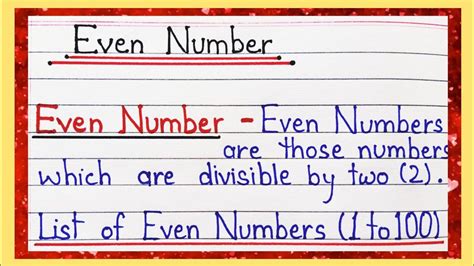 Even Number
Even Number - Even Numbers
are those numbers
which are divisible by two (2).
List of Even Numbers (1 to 100)